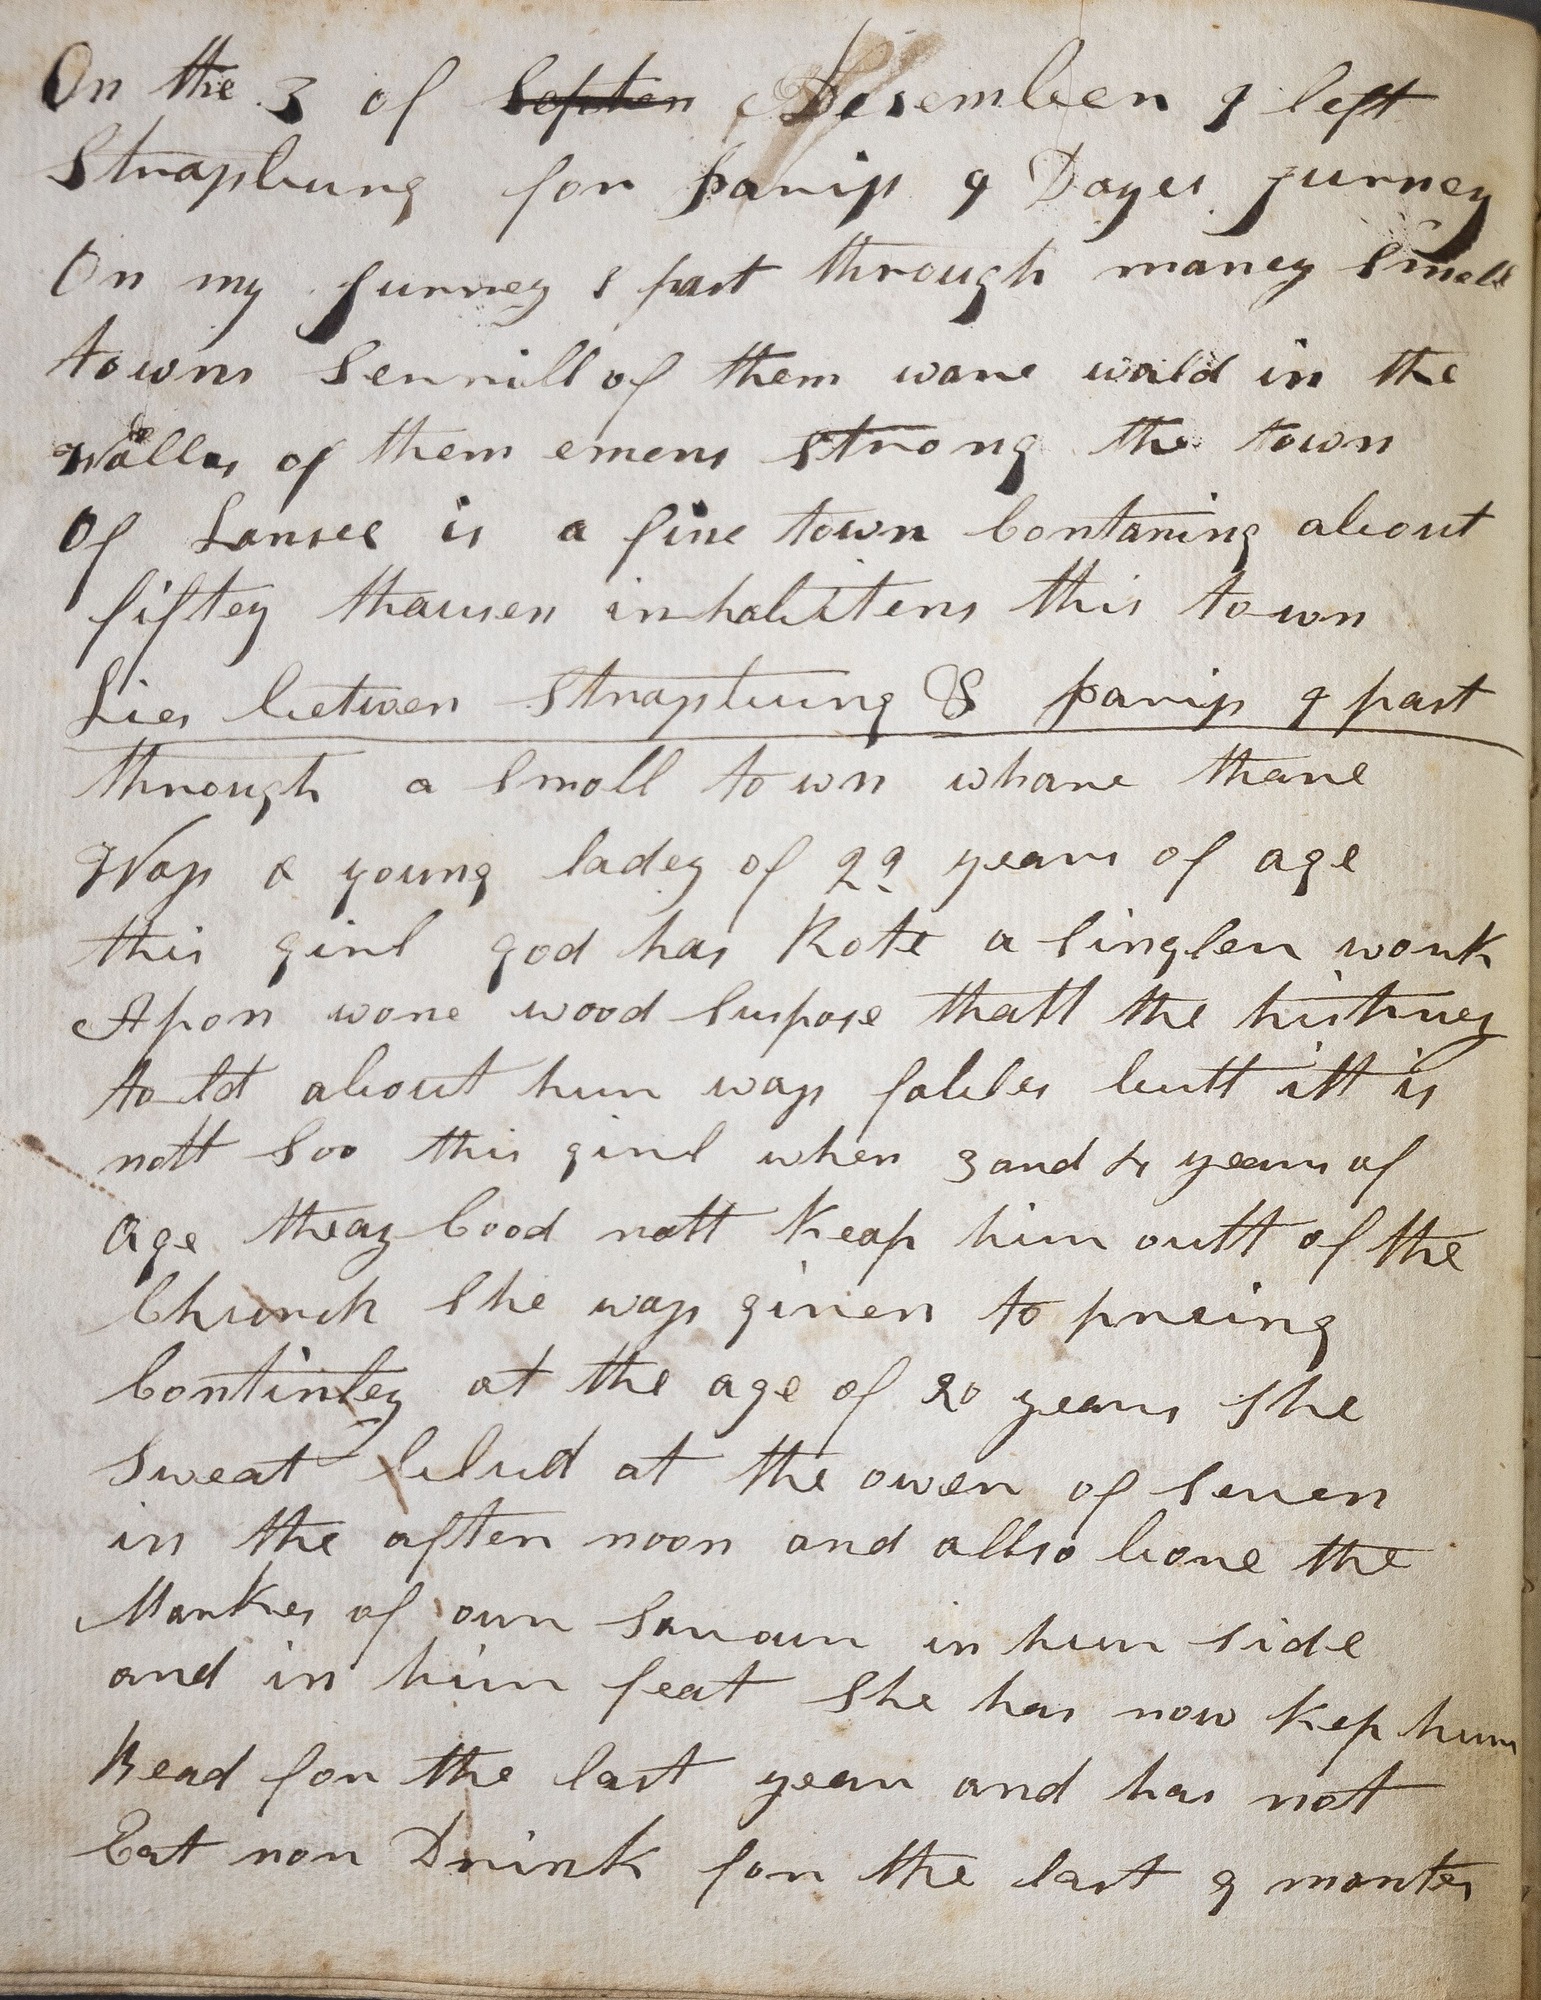 On the 3 of Septer Desember I left
Strasburg for parris 9 Dayes jurney
On my jurney I past through maney small
towns Serrill of them ware walld in the
Walles of them emens strong the town
Of Lansee is a fine town Contaning about
fiftey thausen inhabitens this town
Lies betwen Strasburg & parris I past
through a small town whare thare
Wass a young ladey of 22 years of age
this girl god has Rote a singler work
Apon wone wood supose thatt the histurey
told about hur wass fables butt itt is
nott soo this girl when 3 and 4 years of
age theay Cood nott Keap hur outt of the
Church she wass given to preing
Continley at the age of 20 years she
sweat blud at the ower of seven
in the after noon and allso bore the
Markes of our Savour in hur side
and in hur feat she has now Kep hur
Bead for the last year and has not
Eat nor Drink for the last 9 montes